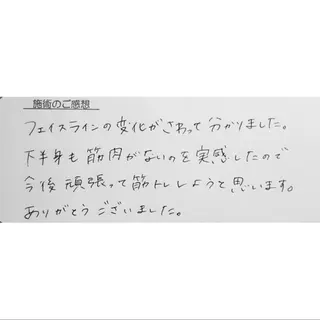 施術のご感想
フェイスラインの変化がさわって分かりました。
下半身も筋肉がないのを実感したので
今後頑張って筋トレしようと思います。
ありがとうございました。